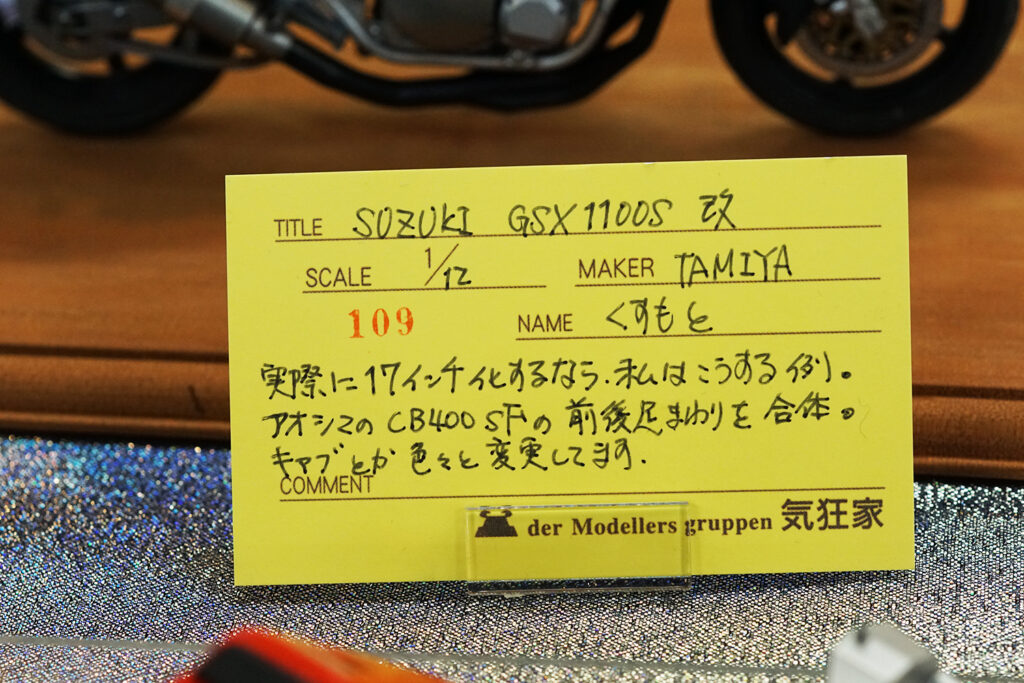 TITLE SUZUKI GSX1100S 改
SCALE 1/12 MAKER TAMIYA
109 NAME くすもと
実際に17インチ化するなら、私はこうする例。
アオシマのCB400SFの前後足まわりを合体。
キャブとか色々と変更してます.
COMMENT
der Modellers gruppen 気狂家